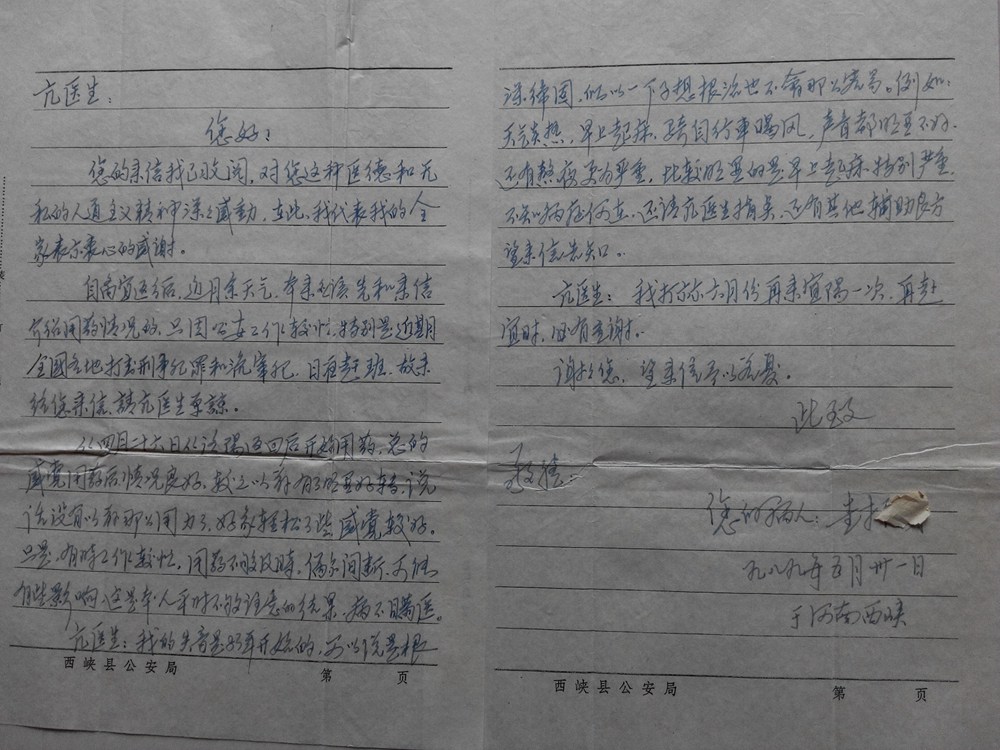 亢医生:
您好!
您的来信我已收阅,对您这种医德和无
私的人道主义精神深深感动,在此,我代表我的全
家表示衷心的感谢。
自南宜返后,近月余天气,本来应该先和来信
介绍用药情况的,只因公安工作较忙,特别是近期
全国各地打击刑事犯罪和流窜犯,日夜赶班,故未
给您来信,請亢医生原諒。
从四月二十六日从洛陽返回后开始用药,总的
感觉用药后情况良好,较之以前有了明显好转,说
话没有以前那么用力了,好象轻松了些,感觉较好。
只是,有时工作较忙,用药不够及時,偶尔间断,可能
有些影响,这是本人平时不够注意的结果,病不目瞒医。
亢医生:我的失音是83年开始的,可以说是根
西峡县公安局 第 页
深蒂固,所以一下子想根治也不会那么容易。例如:
天气炎热,早上起床,骑自行車喝风,声音都明显不好.
还有熬夜更为严重,比较明显的是早上起床特别严重,
不知病症何在,还请亢医生指点,还有其他辅助良方
望来信告知。
亢医生:我打祘六月份再来宜陽一次,再赴
宜时,必有重謝.
谢谢您,望来信予以答复。
此致
敬禮!
您的病人:
一九八九年五月卅一日
于河南西峡
西峡县公安局 第 页